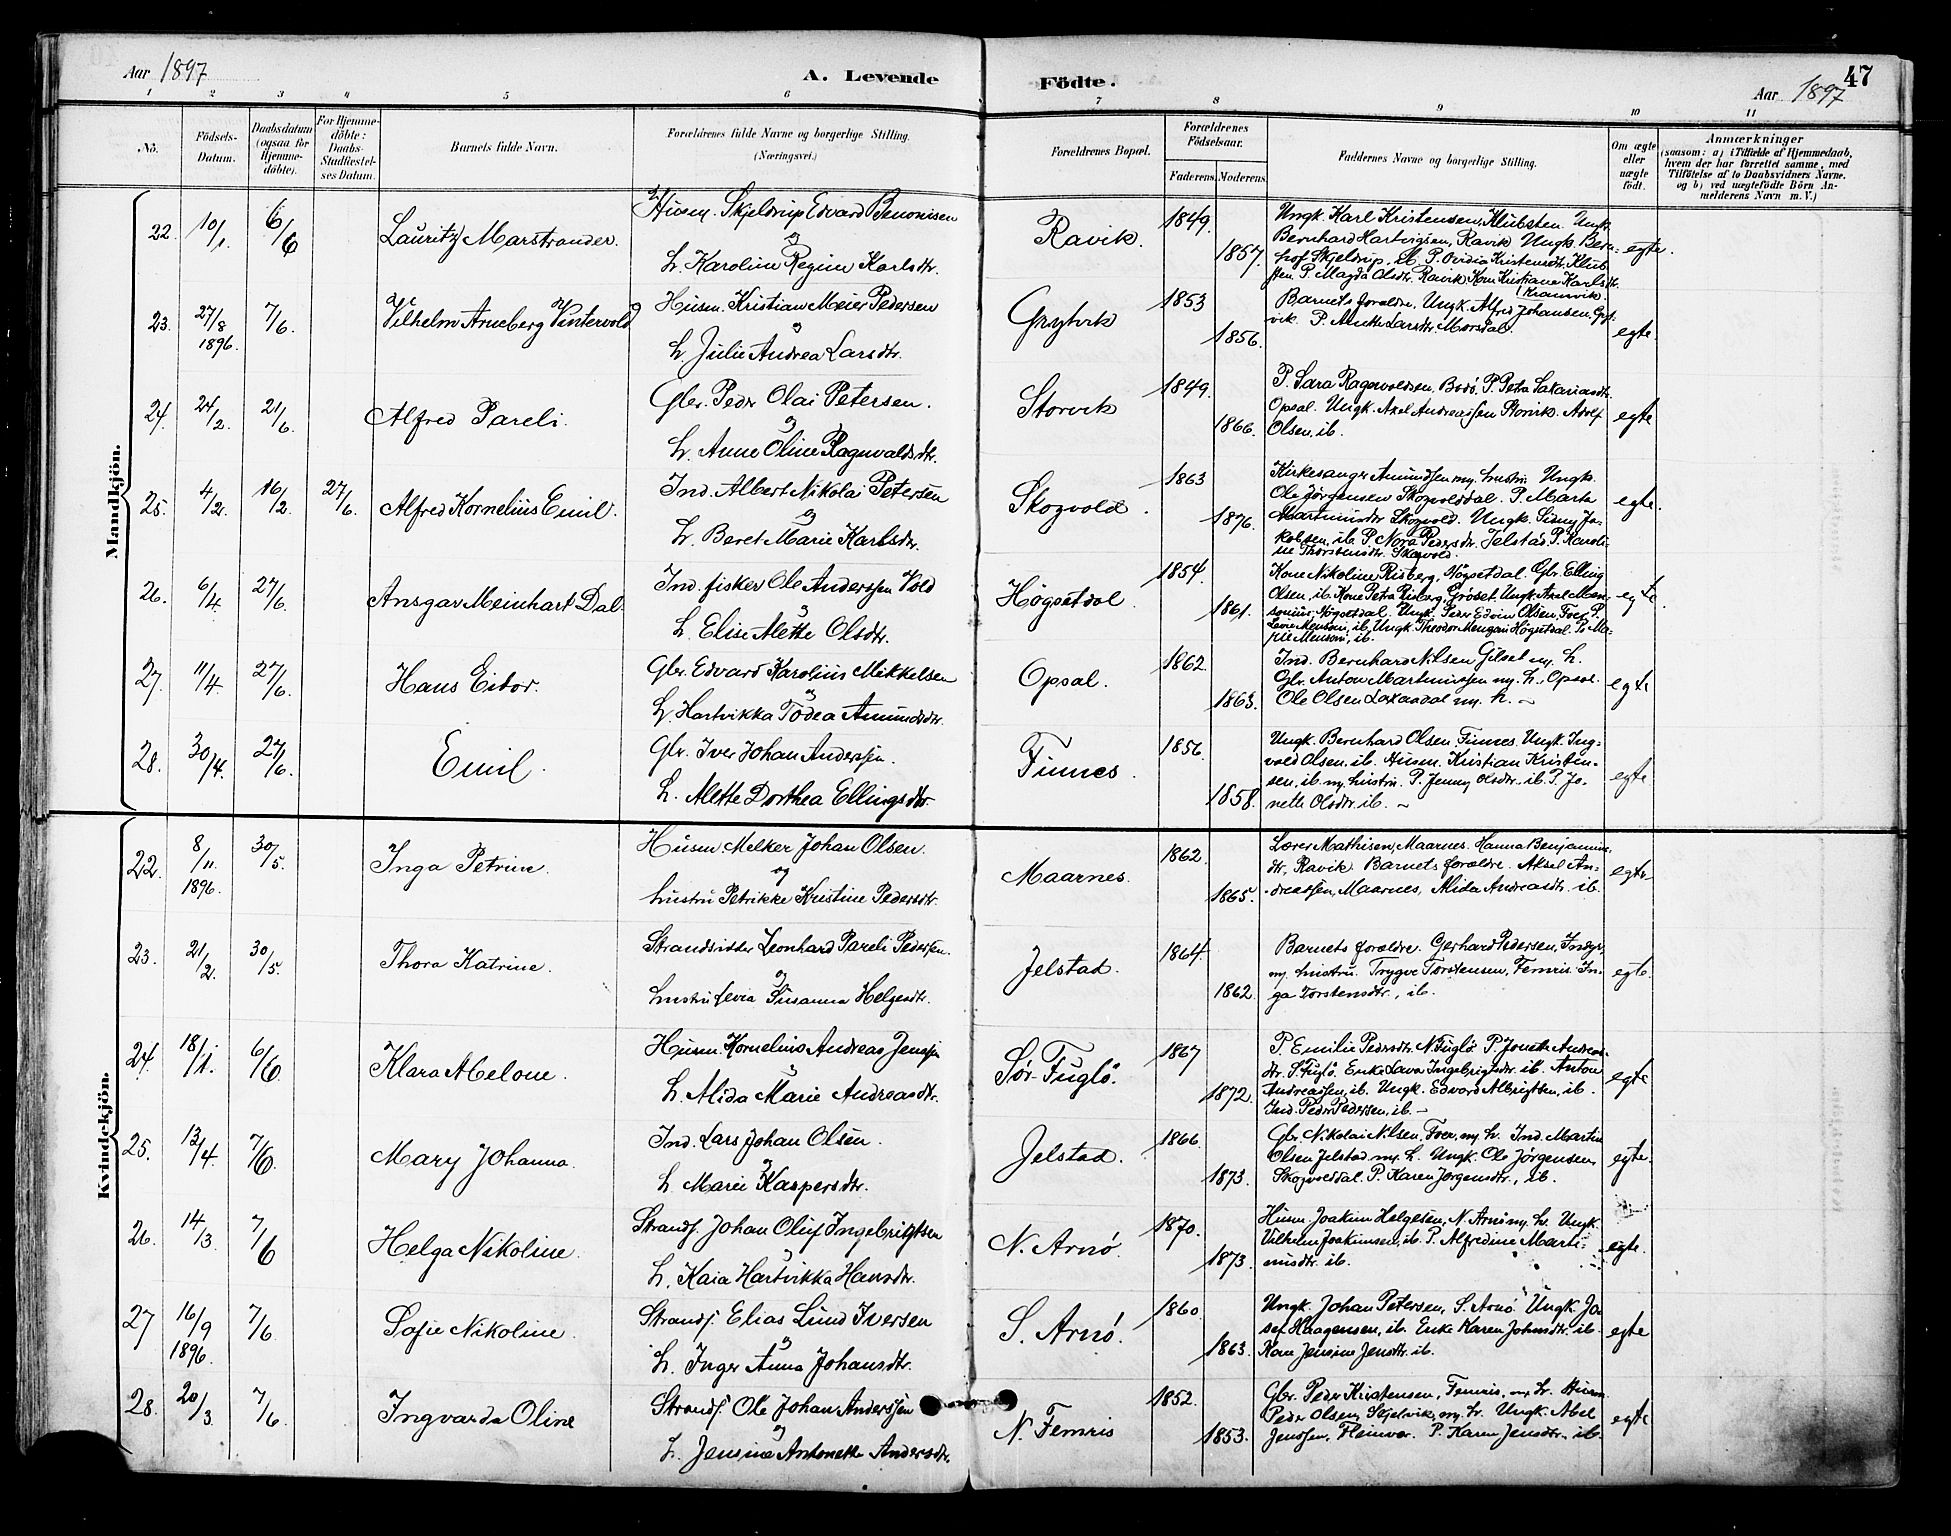 Aar 1897
A. Levende
Födte.
Aar 1897
47
1 2 3 4 5 6 7 8 9 10 11
No.
Födsels-
Datum.
Daabsdatum
(ogsaa for
Hjemme-
döbte).
For Hjemme-
döbte:
Daabs-
Stadfæstel-
ses Datum.
Barnets fulde Navn.
Forældrenes fulde Navne og borgerlige Stilling.
(Næringsvei.)
Forældrenes Bopæl.
Forældrenes
Födselsaar.
Faderens. Moderens.
Faddernes Navne og borgerlige Stilling.
Om ægte
eller
uægte
födt.
Anmærkninger
(saasom: a) i Tilfælde af Hjemmedaab,
hvem der har forrettet samme, med
Tilföielse af to Daabsvidners Navne.
og b) ved uægtefödte Börn An-
melderens Navn m. V.)
Mandkjön.
22. 10/1. 6/6 Lauritz Marstrander.
Husm. Skjeldrup Edvard Benonisen
og
h. Karoline Regine Karlsdtr.
Ravik. 1849. 1857.
Ungk. Karl Kristensen, Klubsten. Ungk.
Bernhard Hartvigsen, Ravik. Ungk. Bern-
hof Skjeldrup, ib. P. Ovidia Kristensdtr. Klub-
sten. P. Magda Olsdtr. Ravik. Kone Kristiane Karlsdtr.
Kramvik.
egte.
23. 27/8 1896. 7/6. Vilhelm Arneberg Vintervold
Husm. Kristian Meier Pedersen
og
h. Julie Andrea Larsdtr.
Grytvik 1853 1856.
Barnets forældre. Ungk. Alfred Johansen, Gryt-
vik. P. Anette Larsdtr. Morsdal.
egte.
24. 24/2. 21/6. Alfred Pareli.
Gbr. Peder Olai Petersen.
og
h. Anne Oline Ragnvaldsdtr.
Storvik 1849. 1866.
P. Sara Ragnvoldsen, Bodö. P. Petra Sakariasdtr.
Opsal. Ungk. Axel Andreassen Storvik. Adolf
Olsen, ib.
egte
25. 4/2. 16/2. 27/6. Alfred Kornelius Emil.
Ind. Albert Nikolai Petersen
og
h. Beret Marie Karlsdtr.
Skogvold. 1863 1876.
Kirkesanger Amundsen m. hustru. Ungk.
Ole Jørgensen Skogvolddal. P. Marta
Martinusdtr. Skogvold. Ungk. Sidny Ja-
kobsen, ib. P. Nora Pedersdtr. Jelstad. P. Karoli-
ne Thorstensdtr. Skogvold.
egte.
26. 6/4. 27/6. Ansgar Meinhart Dal.
Ind. fisker Ole Anderssen Vold
og
h. Elise Alette Olsdtr.
Högsetdal. 1854. 1861.
Kone Nikoline Risberg, Högsetdal. Gbr. Elling
Olsen, ib. Kone Petra Risberg, Gröset. Ungk. Axel Mon-
sonius Högsetdal. Ungk. Peder Edvin Olsen, Foer. P.
ib. Ungk. Theodor Högsetdal. P. Ma-
rie ib.
egte.
27. 11/4. 27/6. Hans Eidor.
Gbr. Edvard Karolius Mikkelsen
og
h. Hartvikka Todea Amundsdtr.
Opsal. 1862. 1863.
Ind. Bernhard Nilsen Gilset m. h.
Gbr. Anton Martinussen m. h., Opsal.
Ole Olsen Laxaadal m. h. ~
egte
28. 30/4. 27/6. Emil.
Gbr. Iver Johan Anderssen.
h. Alette Dorthea Ellingsdtr.
Finnes. 1856 1858.
Ungk. Bernhard Olsen, Finnes. Ungk. Ing-
vald Olsen, ib. Husm. Kristian Kristen-
sen, ib. m. hustru. P. Jenny Olsdtr. ib. P. Jo-
nette Olsdtr. ib. ~
egte.
Kvindekjön.
22. 8/11. 1896. 30/5. Inga Petrine.
Husm. Melker Johan Olsen.
og
hustru Petrikke Kristine Pedersdtr.
Maarnes. 1862. 1865.
Lærer Mathisen, Maarnes. Hanna Benjamins-
dtr, Ravik. Barnets forældre. Aksel An-
dreassen, Maarnes, Alida Andreasdtr. ib.
egte.
23. 21/2. 30/5. Thora Katrine.
Strandsidder Leonhard Pareli Pedersen.
og
hustru Levia Susanna Helgesdtr.
Jelstad. 1864. 1862.
Barnets forældre. Gerhard Pedersen, Indyr
m. hustru. Trygve Torstensen, Femris. In-
ga Torstensdtr., ib.
egte.
24. 18/1. 6/6. Klara Melone.
Husm. Kornelius Andreas Jenssen
og
h. Alida Marie Andreasdtr.
Sør-Fuglö. 1867 1872.
P. Emilie Pedersdtr. N. Fuglö. P. Jonette Andreas-
dtr. S. Fuglö. Enke Lava Ingebrigtsdtr. ib. Anton
Andreassen, ib. Ungk. Edvard Albrigtsen, ib.
Ind. Peder Pedersen, ib. ~
egte
25. 13/4. 7/6. Mary Johanna.
Ind. Lars Johan Olsen.
og
h. Marie Kaspersdtr.
Jelstad. 1866. 1873.
Gbr. Nikolai Nilsen, Foer, m. h. Ind. Martin
Olsen Jelstad m. h. Ungk. Ole Jørgensen,
Skogvolddal. P. Karen Jørgensdtr., ib.
egte.
26. 14/3. 7/6 Helga Nikoline.
Strands. Johan Oluf Ingebrigtsen
og
h. Kaia Hartvikka Hansdtr.
N. Arnö. 1870. 1873.
Husm. Joakim Helgesen, N. Arnö m. h. Ungk.
Vilhelm Joakimsen, ib. P. Alfredine Marti-
nusdtr. ib.
egte.
27 16/9 1896. 7/6. Sofie Nikoline.
Strands. Elias Lund Iversen
og
h. Inger Anna Johansdtr.
S. Arnö. 1860 1863.
Ungk. Johan Petersen, S. Arnö. Ungk. Jo-
sef Haagensen, ib. Enke Karen Johnsdtr. ib.
Kone Jensine Jensdtr. ib.
egte
28. 20/3. 7/6. Ingvarda Oline
Strands. Ole Johan Anderssen
og
h. Jensine Antonette Andersdtr.
N. Femris 1852. 1853.
Gbr. Peder Kristensen, Femris, m. h. Husm.
Peder Olsen, Skjelvik, m. h. Ungk. Abel
Jenssen, Fleinvær. P. Karen Jensdtr. ib.
egte